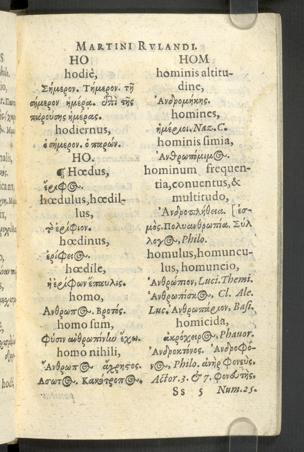 MARTINI RVLANDI.
HO
hodiè,
Σήμερον. Τήμερον. τῇ
σήμερον ἡμέρᾳ. ἐπὶ τῆς
παρούσης ἡμέρας.
hodiernus,
ὁ σήμερον. ὁ παρών.
HO.
¶ Hœdus,
ἔριφος.
hœdulus, hœdil-
lus,
τὸ ἐρίφιον.
hœdinus,
ἐρίφειος.
hœdile,
ἡ ἐρίφων ἔπαυλις.
homo,
Ἄνθρωπος. Βροτός.
homo sum,
Φύσιν ἀνθρωπίνην ἔχω.
homo nihili,
Ἄνθρωπος ἄχρηστος.
Ἄσωτος.
HOM
hominis altitu-
dine,
Ἀνδρομήκης.
homines,
ἡμέριοι. Naz. C.
hominis simia,
Ἀνθρωπόμιμος.
hominum frequen-
tia, conuentus, &
multitudo,
Ἀνδροπλήθεια. ἑσ-
μός. Πολυανθρωπία. Σύλ
λογος, Philo.
homulus, homuncu-
lus, homuncio,
Ἀνθρώπιον, Luci. Themi.
Ἀνθρωπίσκος. Cl. Ale.
Luc. Ἀνθρωπάριον, Basi.
homicida,
Phauor.
Ἀνδροκτόνος. Ἀνδροφό-
νος, Philo. ἀνὴρ φονεύς.
Actor. 3. & 7.
Ss 5 Num. 25.